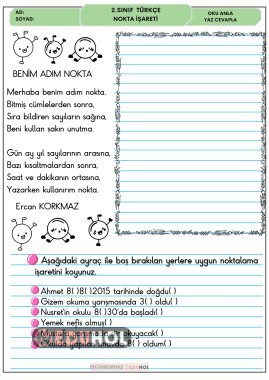 AD:
SOYAD:
2.SINIF TÜRKÇE
NOKTA İŞARETİ
OKU ANLA
YAZ CEVAPLA
BENİM ADIM NOKTA
Merhaba benim adım nokta.
Bitmiş cümlelerden sonra,
Sıra bildiren sayıların sağına,
Beni kullan sakın unutma.
Gün ay yıl sayılarının arasına,
Bazı kısaltmalardan sonra,
Saat ve dakikanın ortasına,
Yazarken kullanırım nokta.
Ercan KORKMAZ
Aşağıdaki ayraç ile boş bırakılan yerlere uygun noktalama
işaretini koyunuz.
Ahmet 8( )8( )2015 tarihinde doğdu( )
Gizem okuma yarışmasında 3( ) oldu( )
Nusret'in okulu 8( )30'da başladı( )
Yemek nefis olmuş( )
Mustafa yarışmada okuyacak( )
Okulda yapılan sınavda 8( ) oldum( )